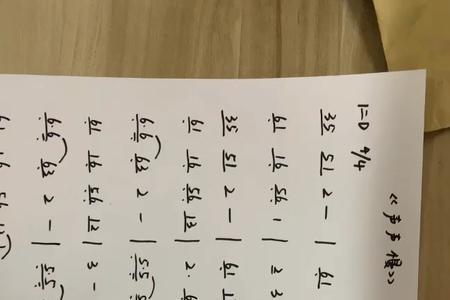 《声声慢》
1=D 4/4
35 51 2 - | 61
61 16 56 1 | 2 3
35 51 2 - | 61
61 16 56 13 | 2.
666 63 2 - | 5.5
61 16 56 12 | 3 -
666 63 2 - | 5.5